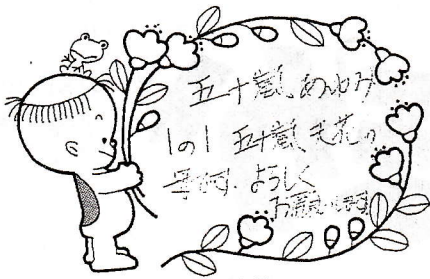 五十嵐 あゆみ
1の1 五十嵐 花の
母です. よろしく
お願いします